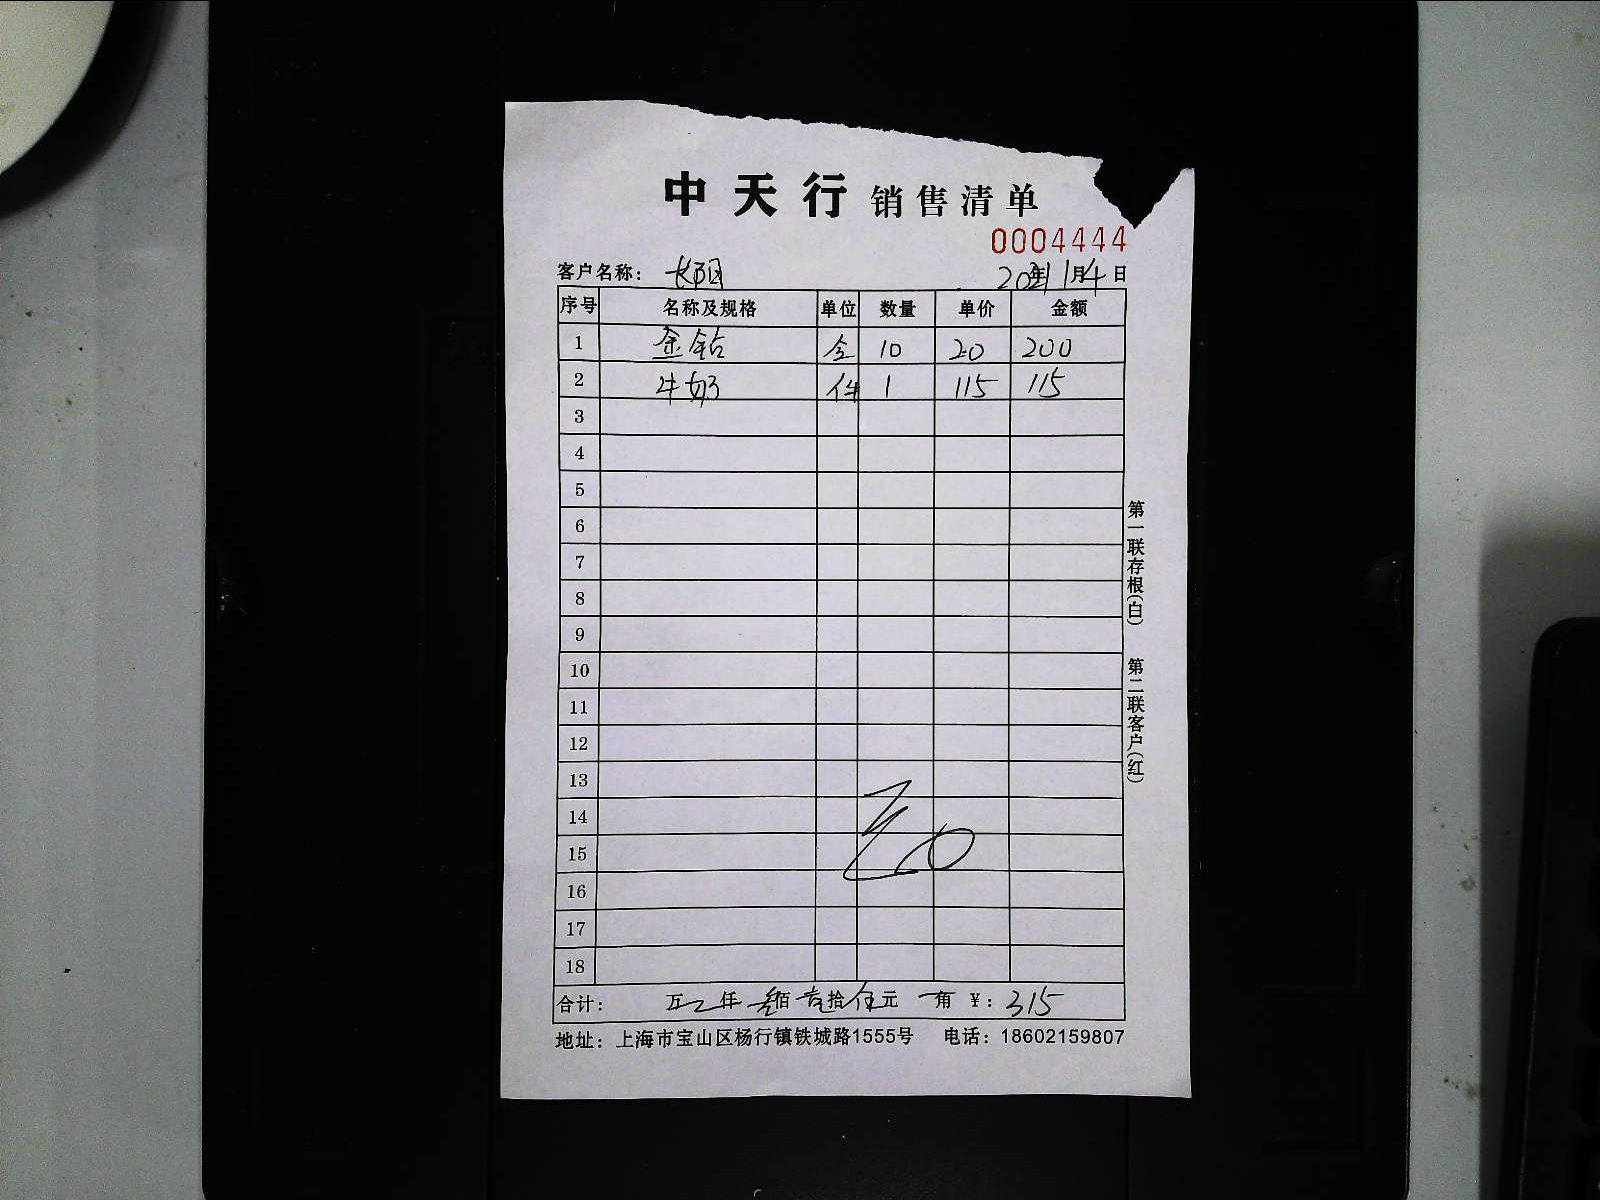 中天行 销售清单
0004444
客户名称： 长阳
2021年1月4日
序号 名称及规格 单位 数量 单价 金额
1 金钻 10 20 200
2 牛奶 件 1 115 115
3
4
5
6
7
8
9
10
11
12
13
14
15
16
17
18
合计： 万 仟 叁佰壹拾伍元 角 ￥：315
地址：上海市宝山区杨行镇铁城路1555号 电话：18602159807
第一联存根(白) 第二联客户(红)